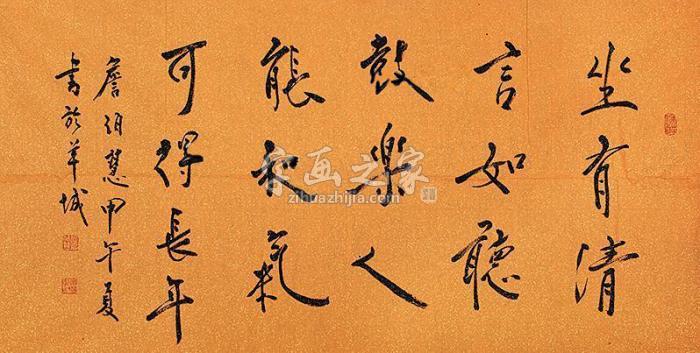 坐有清
言如聽
鼓樂人
能和氣
可得長年
詹伯慧甲午夏
書於羊城
字画之家
zihuazhijia.com